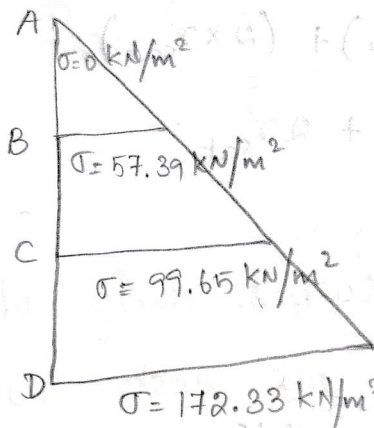 A
σ=0 kN/m²
B
σ= 57.39 kN/m²
C
σ= 99.65 kN/m²
D
σ= 172.33 kN/m²